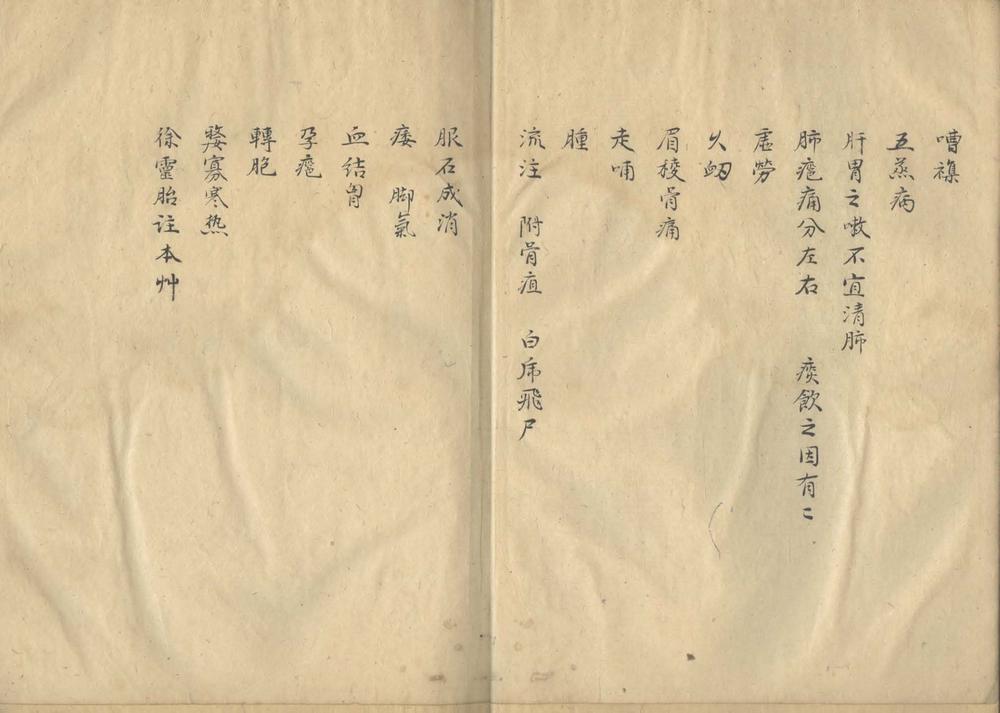 嘈襍
五蒸病
肝胃之嗽不宜清肺
肺瘧痛分左右　痰飲之因有二
虛勞
久衂
眉稜骨痛
走哺
腫
流注　附骨疽　白虎飛尸
服石成消
痿　脚氣
血結胷
孕瘧
轉胞
嫠寡寒热
徐靈胎註本艸